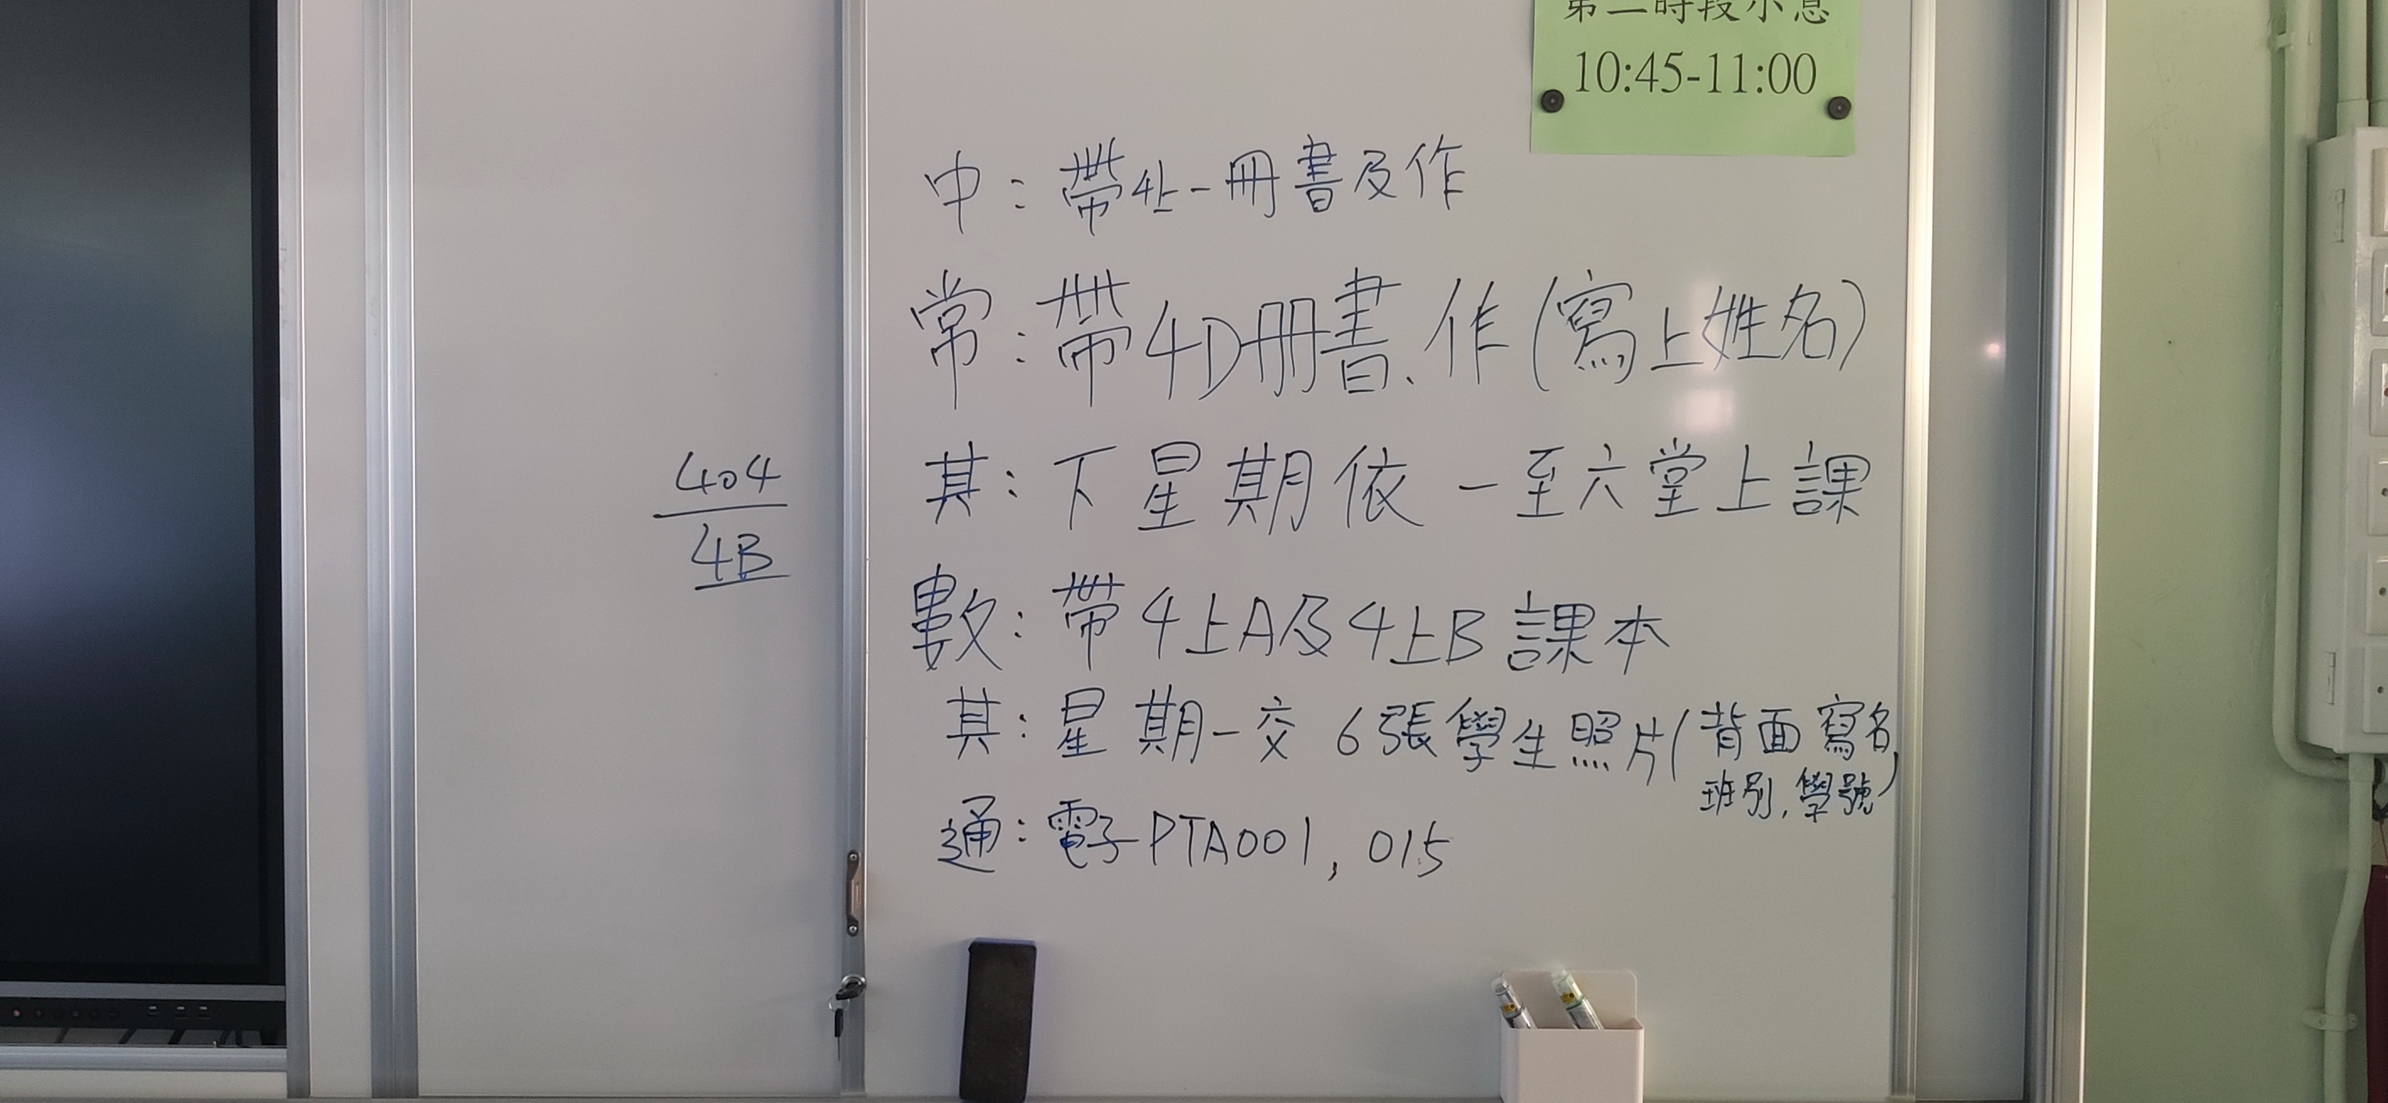 第二時段小息
10:45-11:00
中：帶4上一冊書及作
常：帶4D冊書、作(寫上姓名)
其：下星期依一至六堂上課
404
4B
數：帶4上A及4上B課本
其：星期一交6張學生照片(背面寫名,
班別,學號)
通：電子PTA001, 015